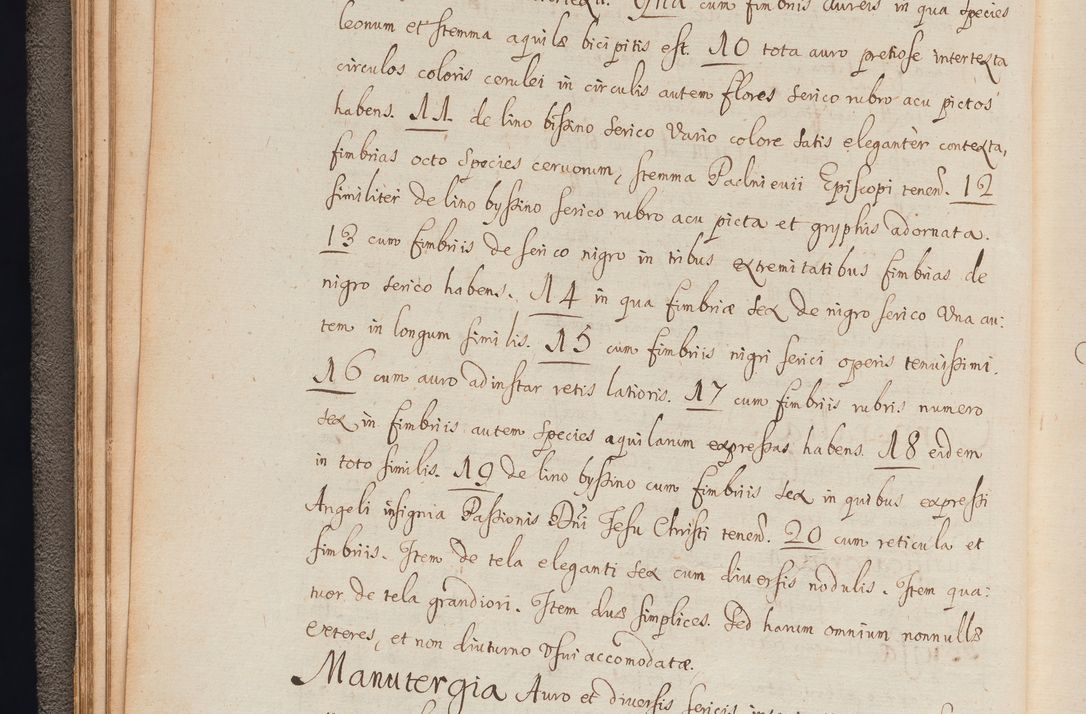 Una cum fimbriis aureis in qua species
leonum et stemma aquilæ bicipitis est. 10 tota auro pretiose intertexta
circulos coloris cerulei in circulis autem flores serico rubro acu pictos
habens. 11. de lino bissino serico vario colore satis eleganter contexta,
fimbrias octo species ceruorum, stemma Padnieuii Episcopi tenen. 12
similiter de lino byssino serico rubro acu picta et gryphis adornata.
13 cum fimbriis de serico nigro in tribus extremitatibus fimbrias de
nigro serico habens. 14 in qua fimbriæ sex de nigro serico Una au:
tem in longum similis. 15 cum fimbriis nigri serici operis tenuissimi.
16 cum auro ad instar retis latioris. 17 cum fimbriis rubris numero
sex in fimbriis autem species aquilarum expressas habens. 18 eidem
in toto similis. 19 de lino byssino cum fimbriis sex in quibus expressi
Angeli insignia Passionis Dni Jesu Christi tenen. 20 cum reticula et
fimbriis. Item de tela eleganti sex cum diuersis nodulis. Item qua:
tuor de tela grandiori. Item duæ simplices. Sed harum omnium nonnullæ
exteres, et non diuturno Usui accomodatæ.
Manutergia Auro et diuersis sericis